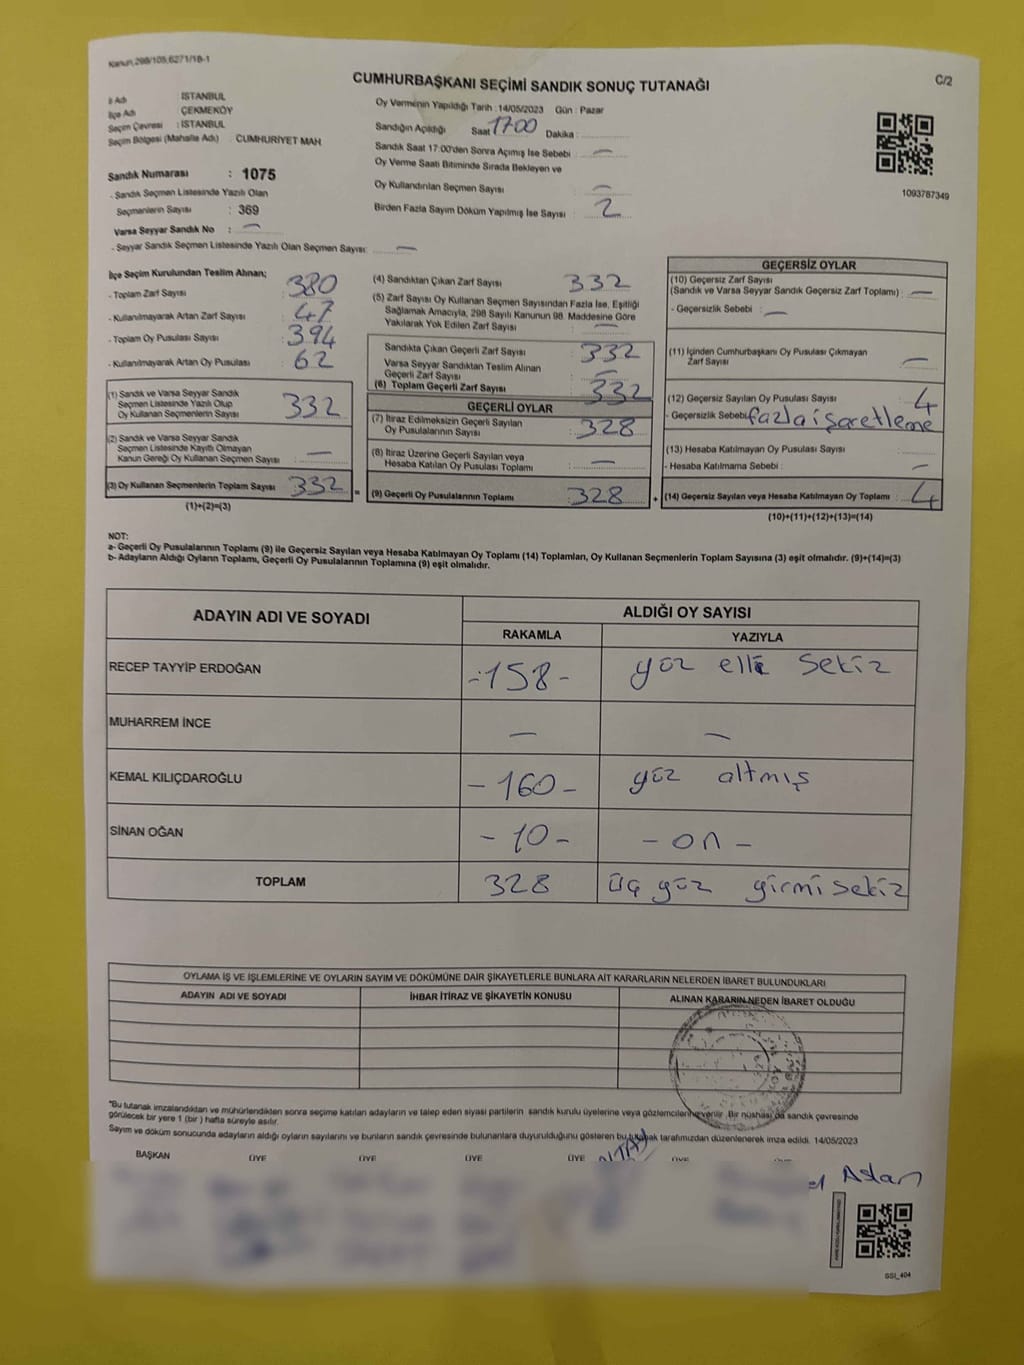 Kanun,298/105,6271/18-1
C/2
CUMHURBAŞKANI SEÇİMİ SANDIK SONUÇ TUTANAĞI
İl Adı İSTANBUL
İlçe Adı ÇEKMEKÖY
Seçim Çevresi : İSTANBUL
Seçim Bölgesi (Mahalle Adı) : CUMHURİYET MAH
Sandık Numarası : 1075
- Sandık Seçmen Listesinde Yazılı Olan
Seçmenlerin Sayısı : 369
Varsa Seyyar Sandık No : —
- Seyyar Sandık Seçmen Listesinde Yazılı Olan Seçmen Sayısı: —
Oy Verme'nin Yapıldığı Tarih : 14/05/2023 Gün : Pazar
Sandığın Açıldığı Saat 17:00 Dakika :
Sandık Saat 17:00'den Sonra Açımış İse Sebebi : —
Oy Verme Saati Bitiminde Sırada Bekleyen ve
Oy Kullandırılan Seçmen Sayısı : —
Birden Fazla Sayım Döküm Yapılmış İse Sayısı : 2
1093787349
İlçe Seçim Kurulundan Teslim Alınan;
- Toplam Zarf Sayısı : 380
- Kullanılmayarak Artan Zarf Sayısı : 47
- Toplam Oy Pusulası Sayısı : 394
- Kullanılmayarak Artan Oy Pusulası : 62
(1) Sandık ve Varsa Seyyar Sandık
Seçmen Listesinde Yazılı Olup
Oy Kullanan Seçmenlerin Sayısı : 332
(2) Sandık ve Varsa Seyyar Sandık
Seçmen Listesinde Kayıtlı Olmayan
Kanun Gereği Oy Kullanan Seçmen Sayısı : —
(3) Oy Kullanan Seçmenlerin Toplam Sayısı : 332
(1)+(2)=(3)
(4) Sandıktan Çıkan Zarf Sayısı : 332
(5) Zarf Sayısı Oy Kullanan Seçmen Sayısından Fazla İse, Eşitliği
Sağlamak Amacıyla, 298 Sayılı Kanunun 98. Maddesine Göre
Yakılarak Yok Edilen Zarf Sayısı : —
Sandıkta Çıkan Geçerli Zarf Sayısı : 332
Varsa Seyyar Sandıktan Teslim Alınan
Geçerli Zarf Sayısı : —
(6) Toplam Geçerli Zarf Sayısı : 332
GEÇERLİ OYLAR
(7) İtiraz Edilmeksizin Geçerli Sayılan
Oy Pusulalarının Sayısı : 328
(8) İtiraz Üzerine Geçerli Sayılan veya
Hesaba Katılan Oy Pusulası Toplamı : —
= (9) Geçerli Oy Pusulalarının Toplamı : 328
GEÇERSİZ OYLAR
(10) Geçersiz Zarf Sayısı
(Sandık ve Varsa Seyyar Sandık Geçersiz Zarf Toplamı) : —
- Geçersizlik Sebebi : —
(11) İçinden Cumhurbaşkanı Oy Pusulası Çıkmayan
Zarf Sayısı : —
(12) Geçersiz Sayılan Oy Pusulası Sayısı : 4
- Geçersizlik Sebebi : fazla işaretleme
(13) Hesaba Katılmayan Oy Pusulası Sayısı :
- Hesaba Katılmama Sebebi : —
+ (14) Geçersiz Sayılan veya Hesaba Katılmayan Oy Toplamı : 4
(10)+(11)+(12)+(13)=(14)
NOT:
a- Geçerli Oy Pusulalarının Toplamı (9) ile Geçersiz Sayılan veya Hesaba Katılmayan Oy Toplamı (14) Toplamları, Oy Kullanan Seçmenlerin Toplam Sayısına (3) eşit olmalıdır. (9)+(14)=(3)
b- Adayların Aldığı Oyların Toplamı, Geçerli Oy Pusulalarının Toplamına (9) eşit olmalıdır.
ADAYIN ADI VE SOYADI ALDIĞI OY SAYISI
RAKAMLA YAZIYLA
RECEP TAYYİP ERDOĞAN -158- yüz elli sekiz
MUHARREM İNCE — —
KEMAL KILIÇDAROĞLU -160- yüz altmış
SİNAN OĞAN -10- -on-
TOPLAM 328 üç yüz yirmi sekiz
OYLAMA İŞ VE İŞLEMLERİNE VE OYLARIN SAYIM VE DÖKÜMÜNE DAİR ŞİKAYETLERLE BUNLARA AİT KARARLARIN NELERDEN İBARET BULUNDUKLARI
ADAYIN ADI VE SOYADI İHBAR İTİRAZ VE ŞİKAYETİN KONUSU ALINAN KARARIN NEDEN İBARET OLDUĞU
*Bu tutanak imzalandıktan ve mühürlendikten sonra seçime katılan adayların ve talep eden siyasi partilerin sandık kurulu üyelerine veya gözlemcilerine verilir. Bir nüshası da sandık çevresinde
görülecek bir yere 1 (bir) hafta süreyle asılır.
Sayım ve döküm sonucunda adayların aldığı oyların sayılarını ve bunların sandık çevresinde bulunanlara duyurulduğunu gösteren bu tutanak tarafımızdan düzenlenerek imza edildi. 14/05/2023
BAŞKAN ÜYE ÜYE ÜYE ÜYE ÜYE
Aslan
SSI_404